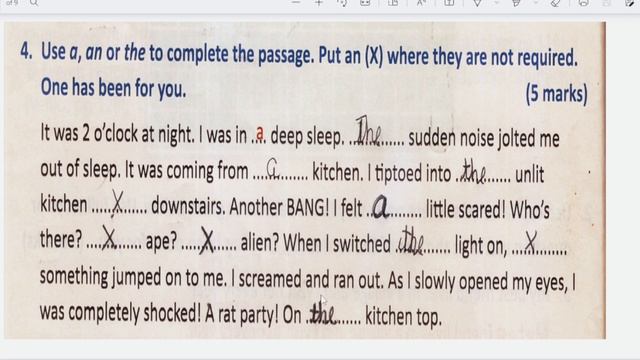 4. Use a, an or the to complete the passage. Put an (X) where they are not required.
One has been for you. (5 marks)
It was 2 o'clock at night. I was in ..a. deep sleep. ..The...... sudden noise jolted me
out of sleep. It was coming from ....a........ kitchen. I tiptoed into ..the...... unlit
kitchen .....X....... downstairs. Another BANG! I felt ..a......... little scared! Who's
there? ....X....... ape? .....X...... alien? When I switched ..the...... light on, ....X.........
something jumped on to me. I screamed and ran out. As I slowly opened my eyes, I
was completely shocked! A rat party! On ..the...... kitchen top.